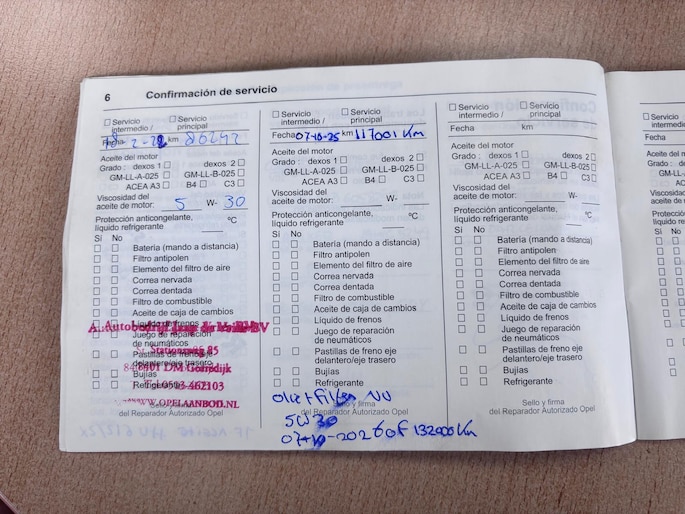 6 Confirmación de servicio
Servicio intermedio /
Servicio principal
Fecha 8-2-22 km 80242
Aceite del motor
Grado: dexos 1 dexos 2
GM-LL-A-025 GM-LL-B-025
ACEA A3 B4 C3
Viscosidad del
aceite de motor: 5 W- 30
Protección anticongelante,
líquido refrigerante °C
Sí No
Batería (mando a distancia)
Filtro antipolen
Elemento del filtro de aire
Correa nervada
Correa dentada
Filtro de combustible
Aceite de caja de cambios
Líquido de frenos
Juego de reparación
de neumáticos
Pastillas de freno eje
delantero/eje trasero
Bujías
Refrigerante
del Reparador Autorizado Opel
85
DM Gorredijk
462103
WWW.OPELAANBOD.NL
Servicio intermedio /
Servicio principal
Fecha 07-10-25 km 117001 km
Aceite del motor
Grado: dexos 1 dexos 2
GM-LL-A-025 GM-LL-B-025
ACEA A3 B4 C3
Viscosidad del
aceite de motor: W-
Protección anticongelante,
líquido refrigerante °C
Sí No
Batería (mando a distancia)
Filtro antipolen
Elemento del filtro de aire
Correa nervada
Correa dentada
Filtro de combustible
Aceite de caja de cambios
Líquido de frenos
Juego de reparación
de neumáticos
Pastillas de freno eje
delantero/eje trasero
Bujías
Refrigerante
Sello y firma
del Reparador Autorizado Opel
Olie + Filter NU
5W30
07-10-2026 of 132000 km
Servicio intermedio /
Servicio principal
Fecha km:
Aceite del motor
Grado: dexos 1 dexos 2
GM-LL-A-025 GM-LL-B-025
ACEA A3 B4 C3
Viscosidad del
aceite de motor: W-
Protección anticongelante,
líquido refrigerante °C
Sí No
Batería (mando a distancia)
Filtro antipolen
Elemento del filtro de aire
Correa nervada
Correa dentada
Filtro de combustible
Aceite de caja de cambios
Líquido de frenos
Juego de reparación
de neumáticos
Pastillas de freno eje
delantero/eje trasero
Bujías
Refrigerante
Sello y firma
del Reparador Autorizado Opel